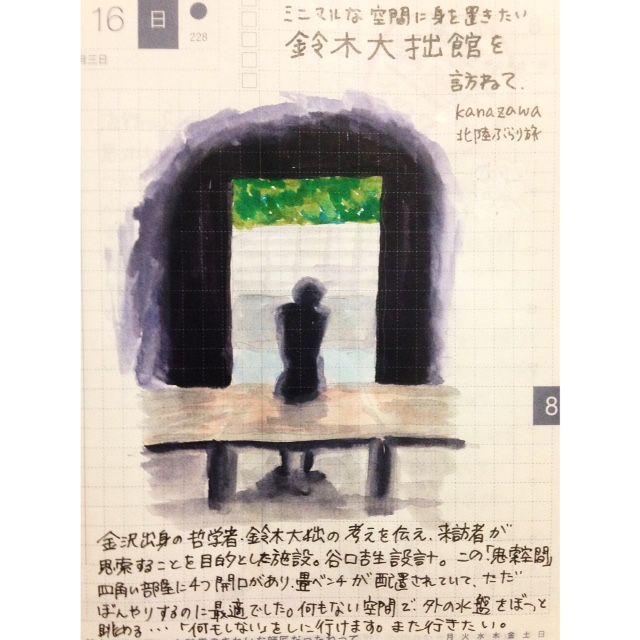 16 日
228
月三日
ミニマルな空間に身を置きたい
鈴木大拙館を
訪ねて.
kanazawa
北陸ぶらり旅
8
金沢出身の哲学者・鈴木大拙の考えを伝え、来訪者が
思索することを目的とした施設。谷口吉生設計。この「思索空間」
四角い部屋に4つ開口があり、畳ベンチが配置されていて、ただ
ぼんやりするのに最適でした。何もない空間で、外の水盤をぼっと
眺める…「何もしない」をしに行けます。また行きたい。
月 火 水 木 金 土 日